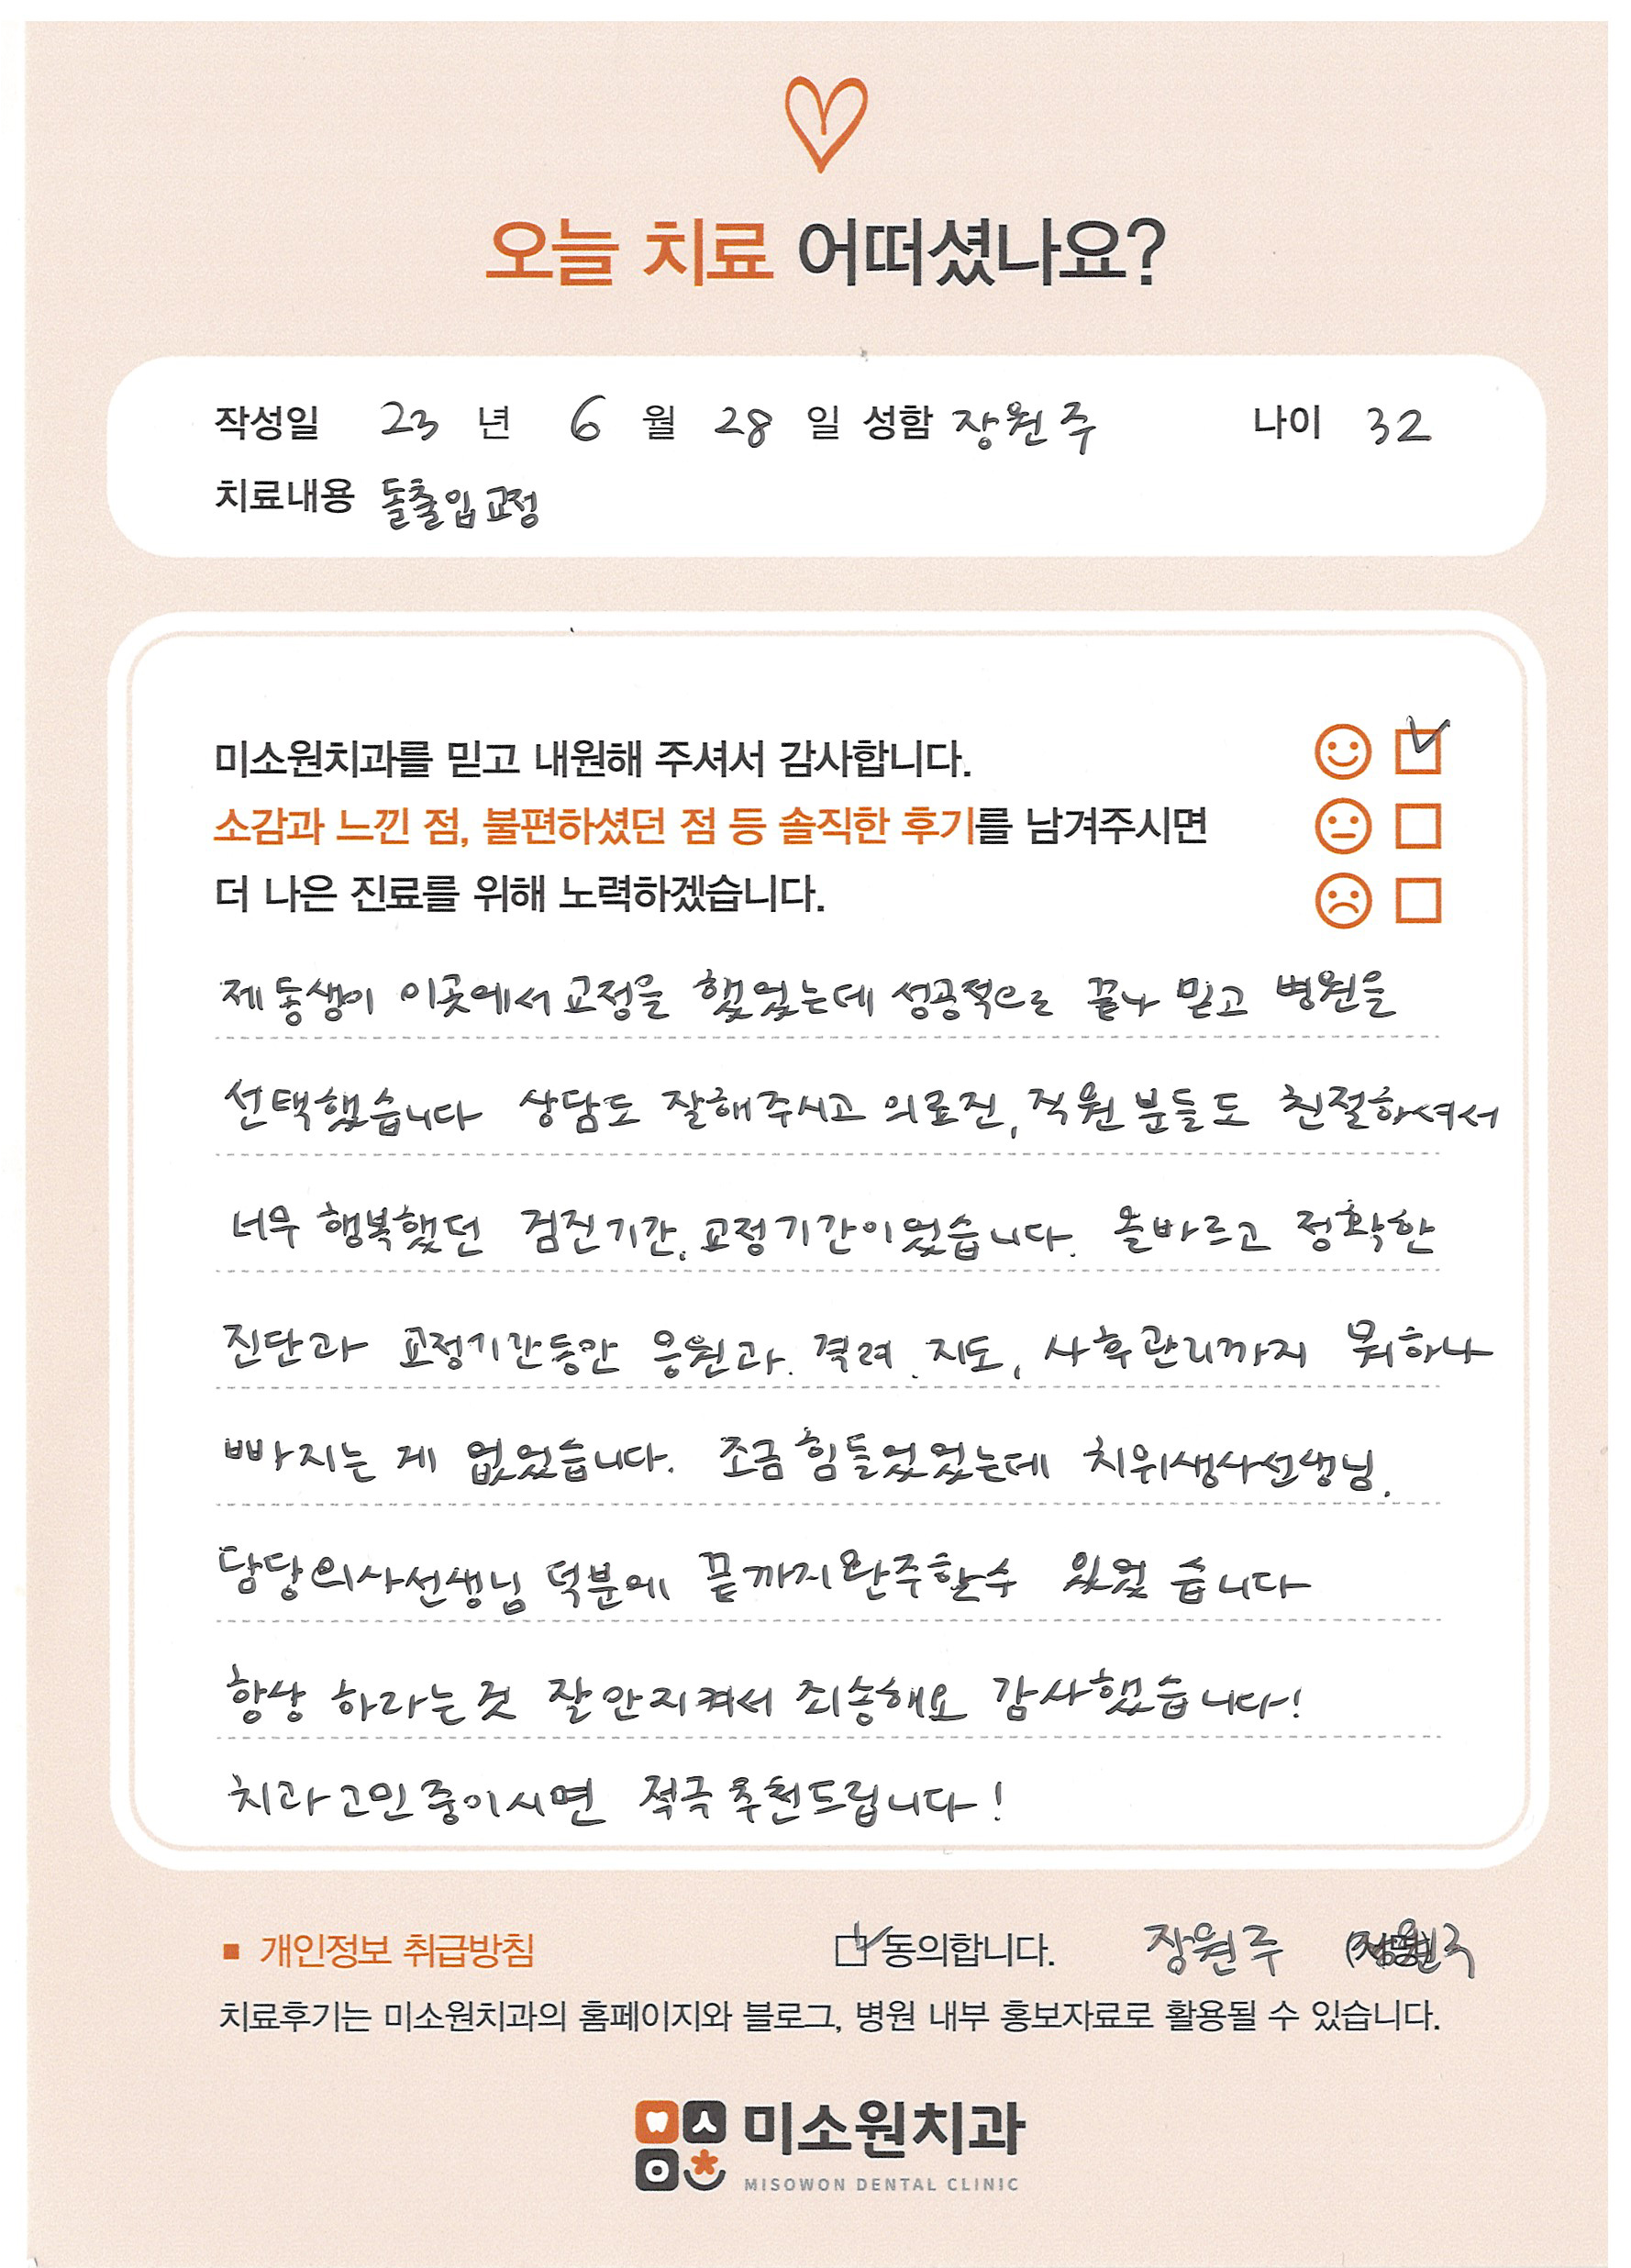 오늘 치료 어떠셨나요?
작성일 23 년 6 월 28 일 성함 장원주 나이 32
치료내용 돌출입교정
미소원치과를 믿고 내원해 주셔서 감사합니다.
소감과 느낀 점, 불편하셨던 점 등 솔직한 후기를 남겨주시면
더 나은 진료를 위해 노력하겠습니다.
제 동생이 이곳에서 교정을 했었는데 성공적으로 끝나 믿고 병원을
선택했습니다 상담도 잘해주시고 의료진, 직원분들도 친절하셔서
너무 행복했던 검진기간, 교정기간이었습니다. 올바르고 정확한
진단과 교정기간동안 응원과. 격려, 지도, 사후관리까지 뭐하나
빠지는 게 없었습니다. 조금 힘들었었는데 치위생사선생님,
담당의사선생님 덕분에 끝까지완주할수 있었습니다
항상 하라는것 잘안지켜서 죄송해요 감사했습니다!
치과고민중이시면 적극추천드립니다!
■ 개인정보 취급방침 동의합니다. 장원주 장원주
치료후기는 미소원치과의 홈페이지와 블로그, 병원 내부 홍보자료로 활용될 수 있습니다.
미소원치과
MISOWON DENTAL CLINIC